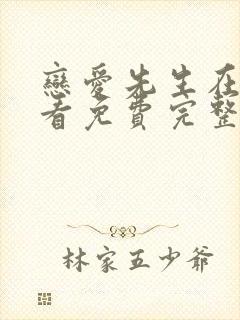 戀愛先生在
看免費完整
林家五少爺